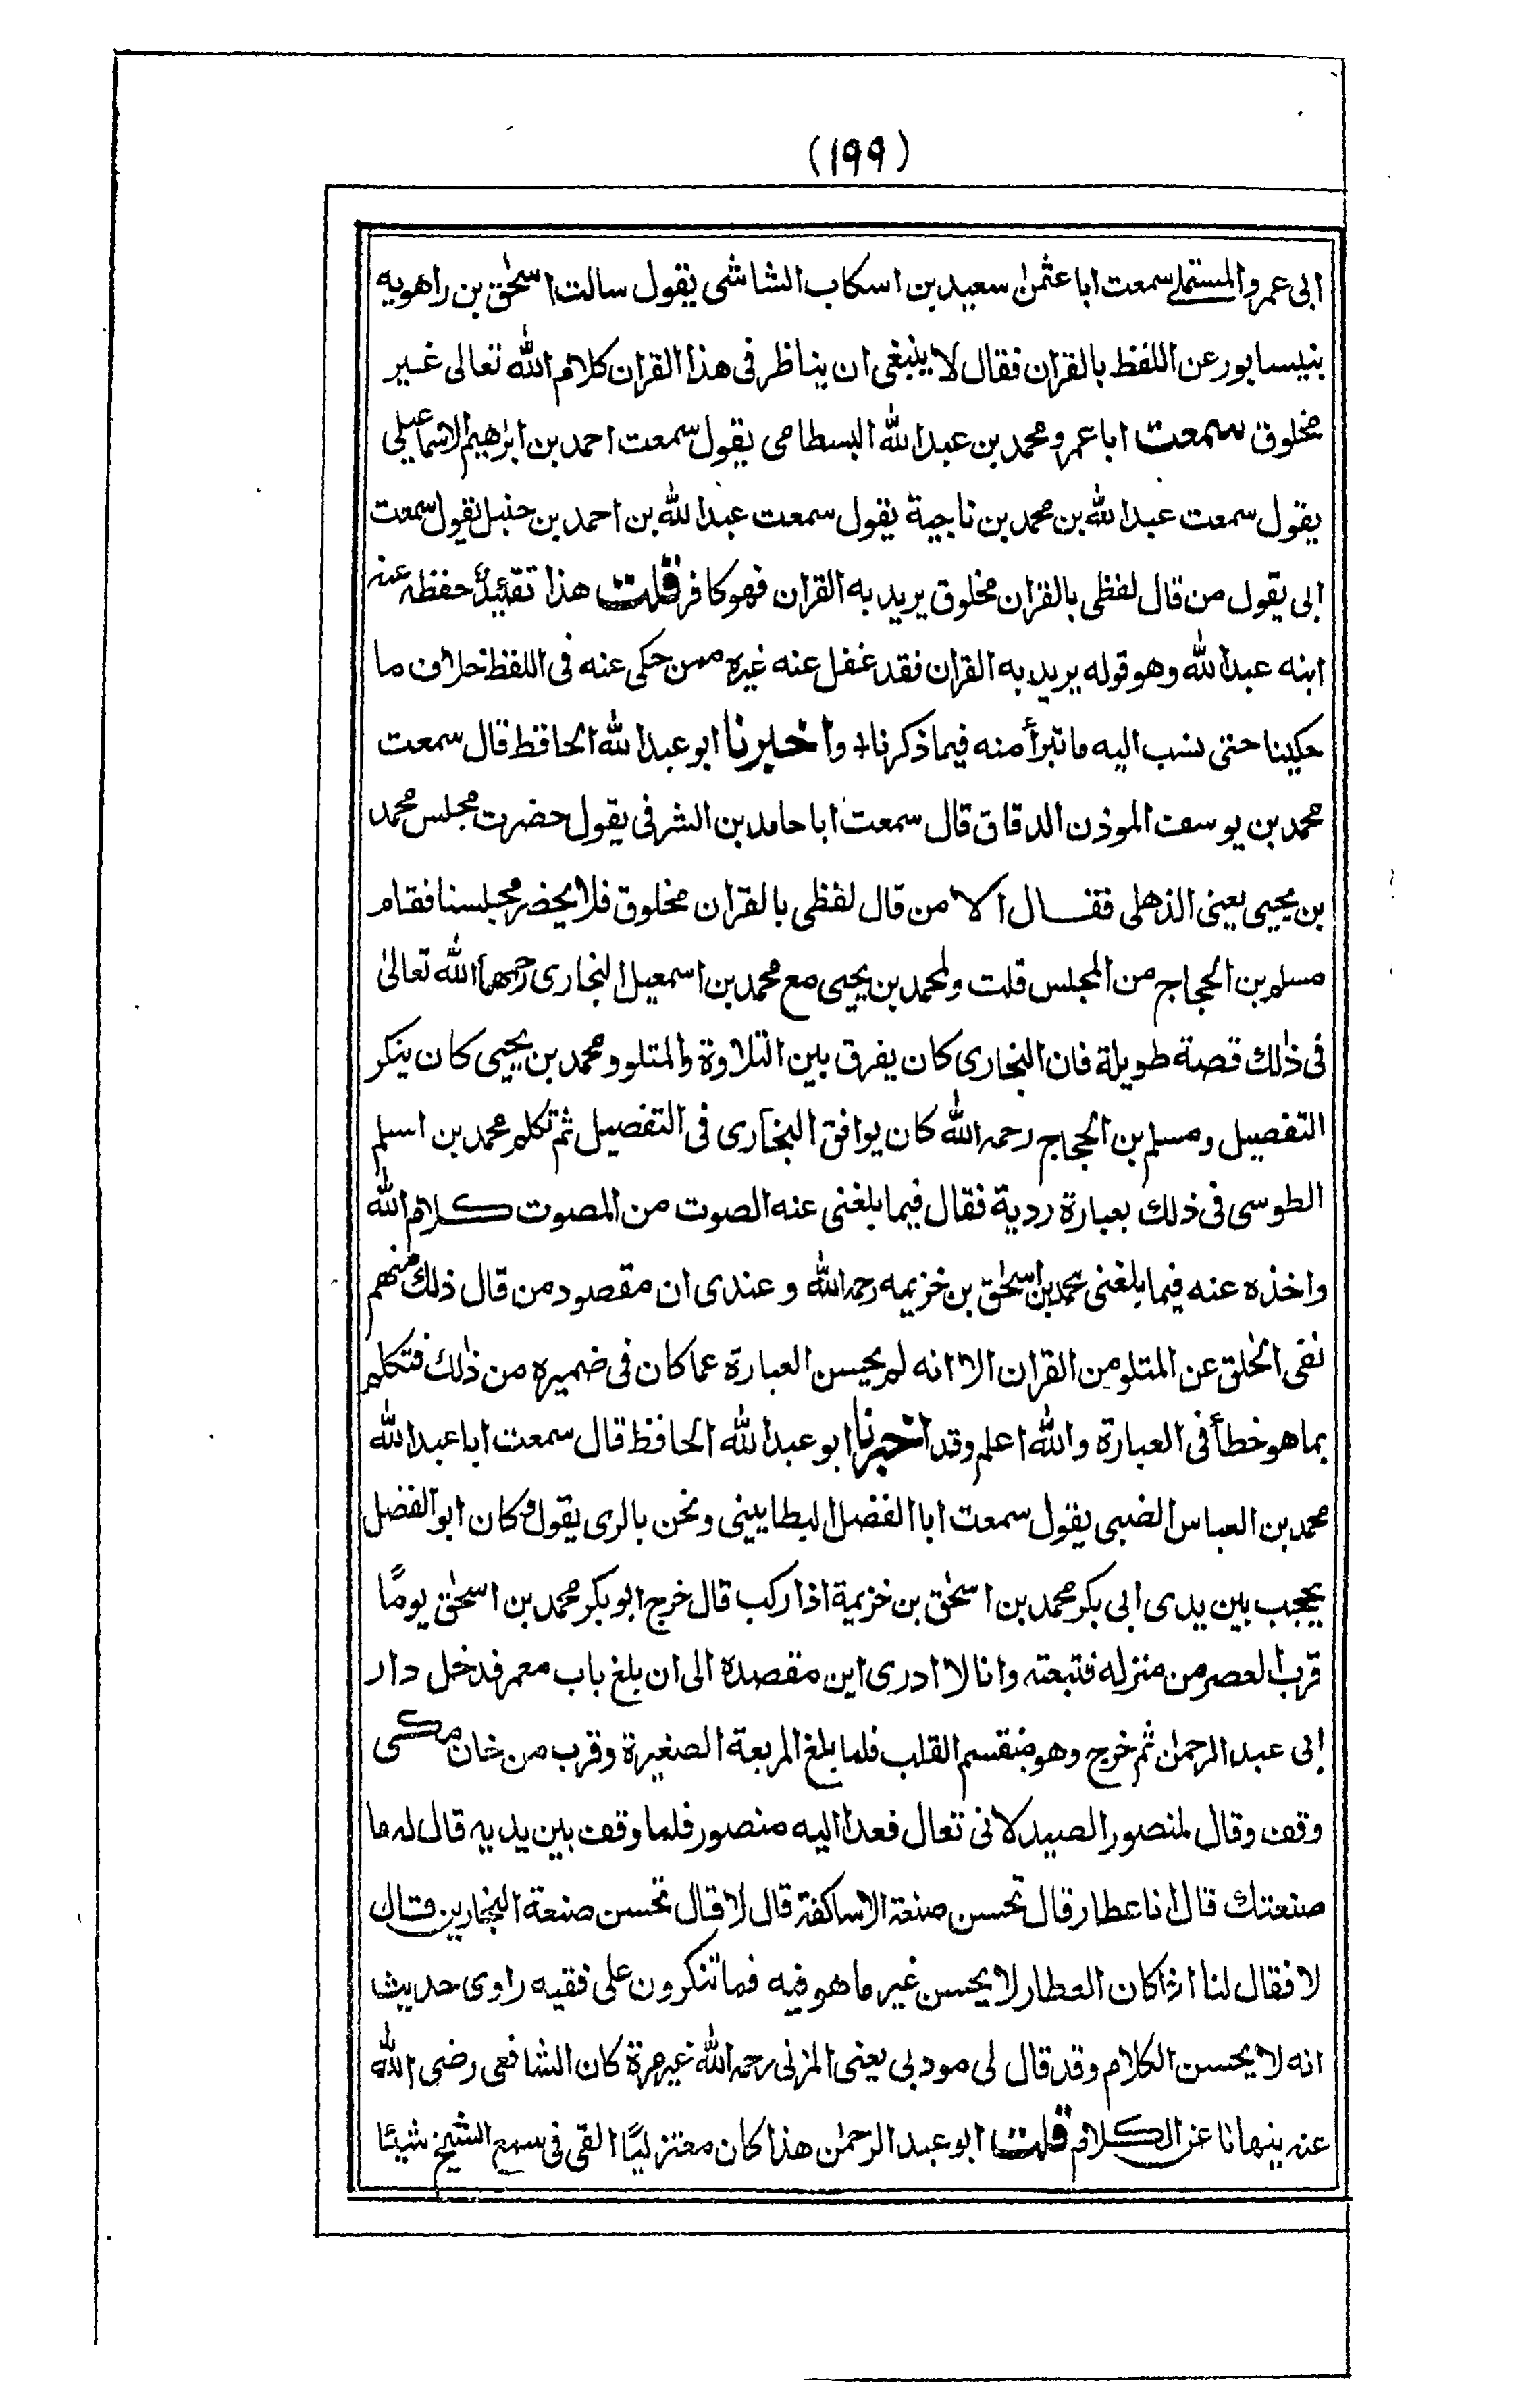 (۱۹۹)
ابى عمرو المستملے سمعت ابا عثمٰن سعيد بن اسكاب الشاشى يقول سالت اسحٰق بن راهويه
بنيسابور عن اللفظ بالقران فقال لا ينبغى ان يناظر فى هذا القران كلام الله تعالى غير
مخلوق سمعت ابا عمرو محمد بن عبد الله البسطامى يقول سمعت احمد بن ابرٰهيم الاسماعيلى
يقول سمعت عبد الله بن محمد بن ناجية يقول سمعت عبد الله بن احمد بن حنبل يقول سمعت
ابى يقول من قال لفظى بالقران مخلوق يريد به القران فهو كافر قلت هذا تقييد حفظه عنه
ابنه عبد الله وهو قوله يريد به القران فقد غفل عنه غيره ممن حكى عنه فى اللفظ خلاف ما
حكينا حتى نسب اليه ما تبرأ منه فيما ذكرنا واخبرنا ابو عبد الله الحافظ قال سمعت
محمد بن يوسف الموذن الدقاق قال سمعت ابا حامد بن الشرفى يقول حضرت مجلس محمد
بن يحيى يعنى الذهلى فقال الا من قال لفظى بالقران مخلوق فلا يحضر مجلسنا فقام
مسلم بن الحجاج من المجلس قلت ولمحمد بن يحيى مع محمد بن اسمعيل البخارى رحمهما الله تعالىٰ
فى ذٰلك قصة طويلة فان البخارى كان يفرق بين التلاوة والمتلو ومحمد بن يحيى كان ينكر
التفصيل ومسلم بن الحجاج رحمه الله كان يوافق البخارى فى التفصيل ثم تكلم محمد بن اسلم
الطوسى فى ذلك بعبارة ردية فقال فيما بلغنى عنه الصوت من المصوت كلام الله
واخذه عنه فيما بلغنى محمد بن اسحٰق بن خزيمه رحمه الله وعندى ان مقصود من قال ذلك منهم
نفى الخلق عن المتلو من القران الا انه لم يحسن العبارة عما كان فى ضميره من ذٰلك فتكلم
بما هو خطأ فى العبارة والله اعلم وقد اخبرنا ابو عبد الله الحافظ قال سمعت ابا عبد الله
محمد بن العباس الضبى يقول سمعت ابا الفضل البطايينى ونحن بالرى يقول وكان ابو الفضل
يحجب بين يدى ابى بكر محمد بن اسحٰق بن خزيمة اذا ركب قال خرج ابو بكر محمد بن اسحٰق يومًا
قرب العصر من منزله فتبعته وانا لا ادرى اين مقصده الى ان بلغ باب معمر فدخل دار
ابى عبد الرحمٰن ثم خرج وهو منقسم القلب فلما بلغ المربعة الصغيرة وقرب من خان مكى
وقف وقال لمنصور الصيدلانى تعال فعدا اليه منصور فلما وقف بين يديه قال له ما
صنعتك قال انا عطار قال تحسن صنعة الاساكفة قال لا قال تحسن صنعة النجارين قال
لا فقال لنا اذا كان العطار لا يحسن غير ما هو فيه فما تنكرون على فقيه راوى حديث
انه لا يحسن الكلام وقد قال لى مودبى يعنى المزنى رحمه الله غير مرة كان الشافعى رضى الله
عنه ينهانا عن الكلام قلت ابو عبد الرحمٰن هذا كان معتزليًا القى فى سمع الشيخ شيئا